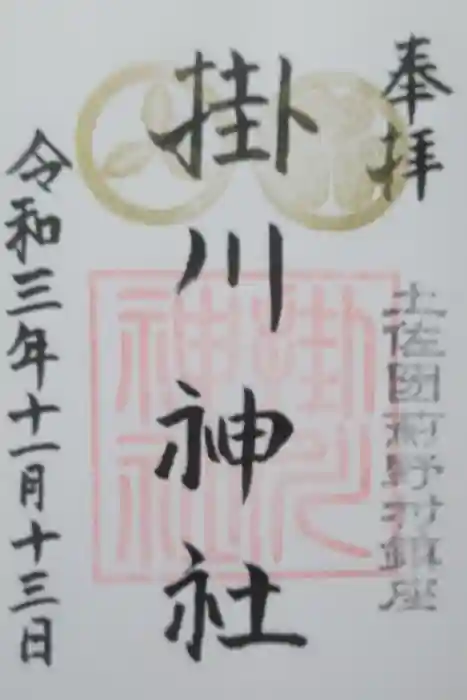 奉拝
土佐国薊野村鎮座
掛川神社
掛川
神社
令和三年十一月十三日